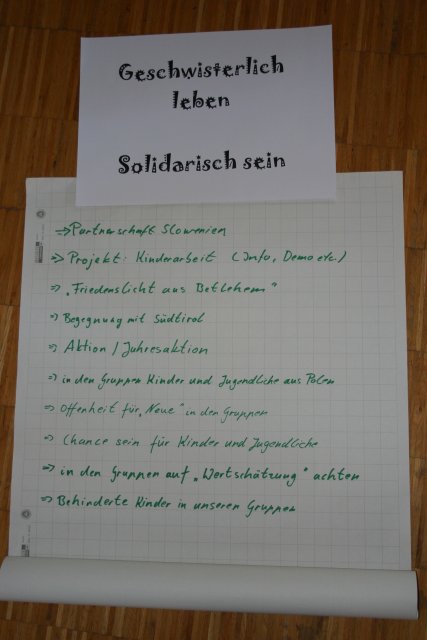 Geschwisterlich
leben
Solidarisch sein
=> Partnerschaft Slowenien
=> Projekt: Kinderarbeit (Info, Demo etc.)
=> „Friedenslicht aus Betlehem"
=> Begegnung mit Südtirol
=> Aktion / Jahresaktion
=> in den Gruppen Kinder und Jugendliche aus Polen
=> Offenheit für „Neue" in den Gruppen
=> Chance sein für Kinder und Jugendliche
=> in den Gruppen auf „Wertschätzung" achten
=> Behinderte Kinder in unseren Gruppen